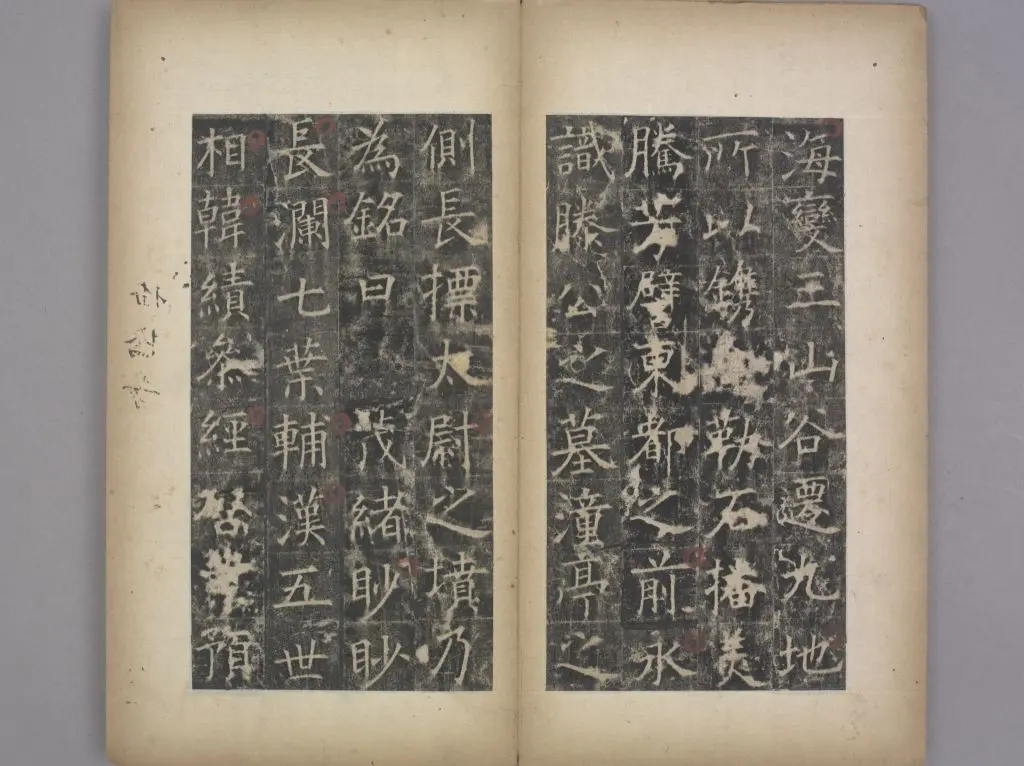 海變三山谷遷九地
所以鐫勒石播美
騰芳譬東都之前永
識滕公之墓潼亭之
側長標太尉之墳乃
為銘曰茂緒眇眇
長瀾七葉輔漢五世
相韓績叅經預